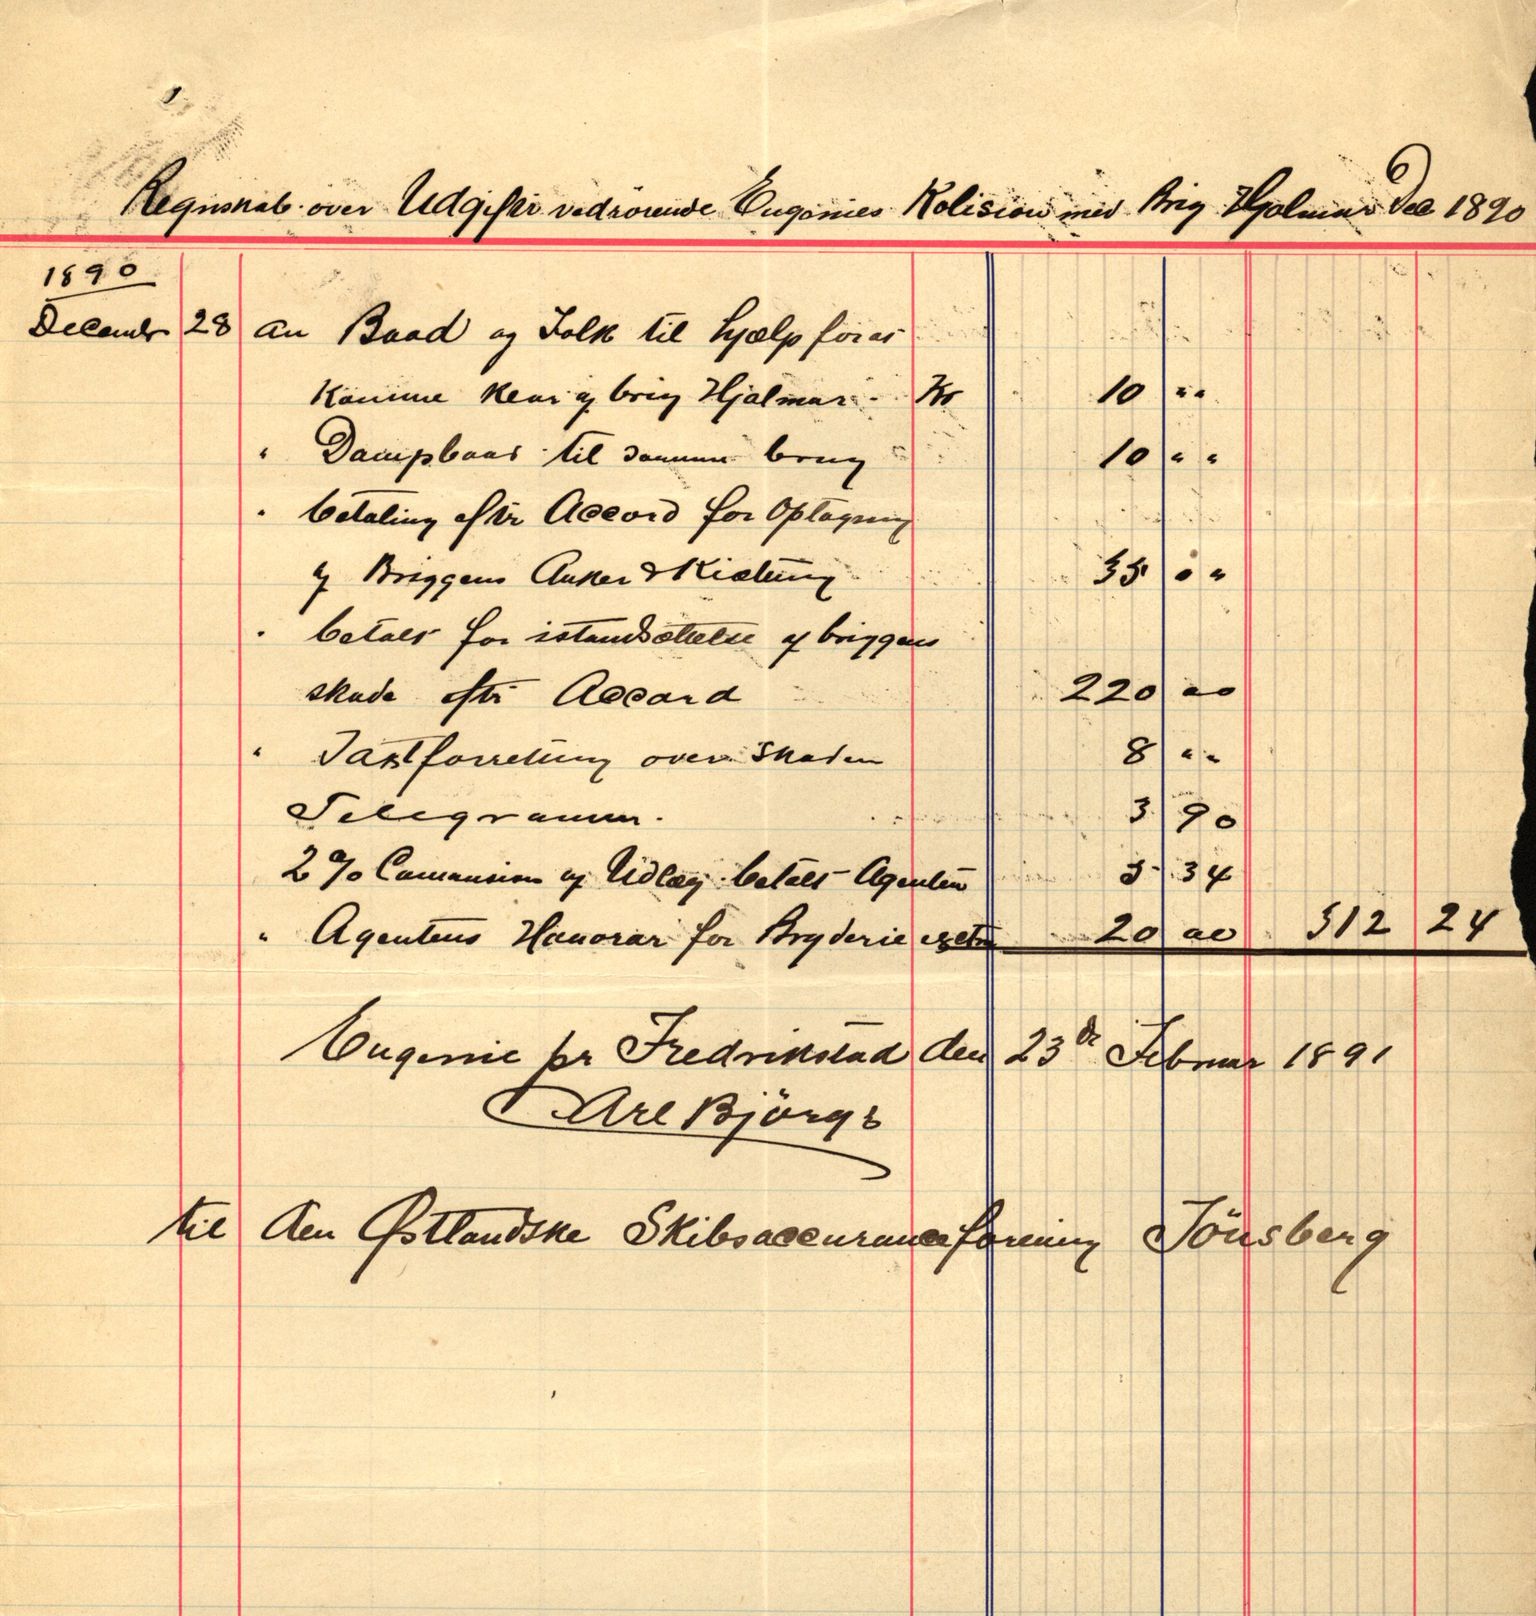 6
Regnskab over Udgifter vedrörende Eugenies Kolision med Brig Hjalmar Dec 1890
1890
December 28 an Baad og Folk til hjælp for at
komme klar af brig Hjalmar Kr 10 " "
" Dampbaad til samme brug 10 " "
" betaling efter Accord for Optagning
af Briggens Anker & Kiætting 35 " "
" betalt for istandsættelse af briggens
skade efter Accord 220 " "
" Taxtforretning over Skaden 8 " "
Telegramm. 3 90
2 % Commision af Udlæg betalt Agenten 5 34
" Agentens Honorar for Bryderie 20 00 312 24
Eugenie pr Fredrikstad den 23de Februar 1891
Carl Björge
til den Østlandske Skibsassuranceforening Tönsberg